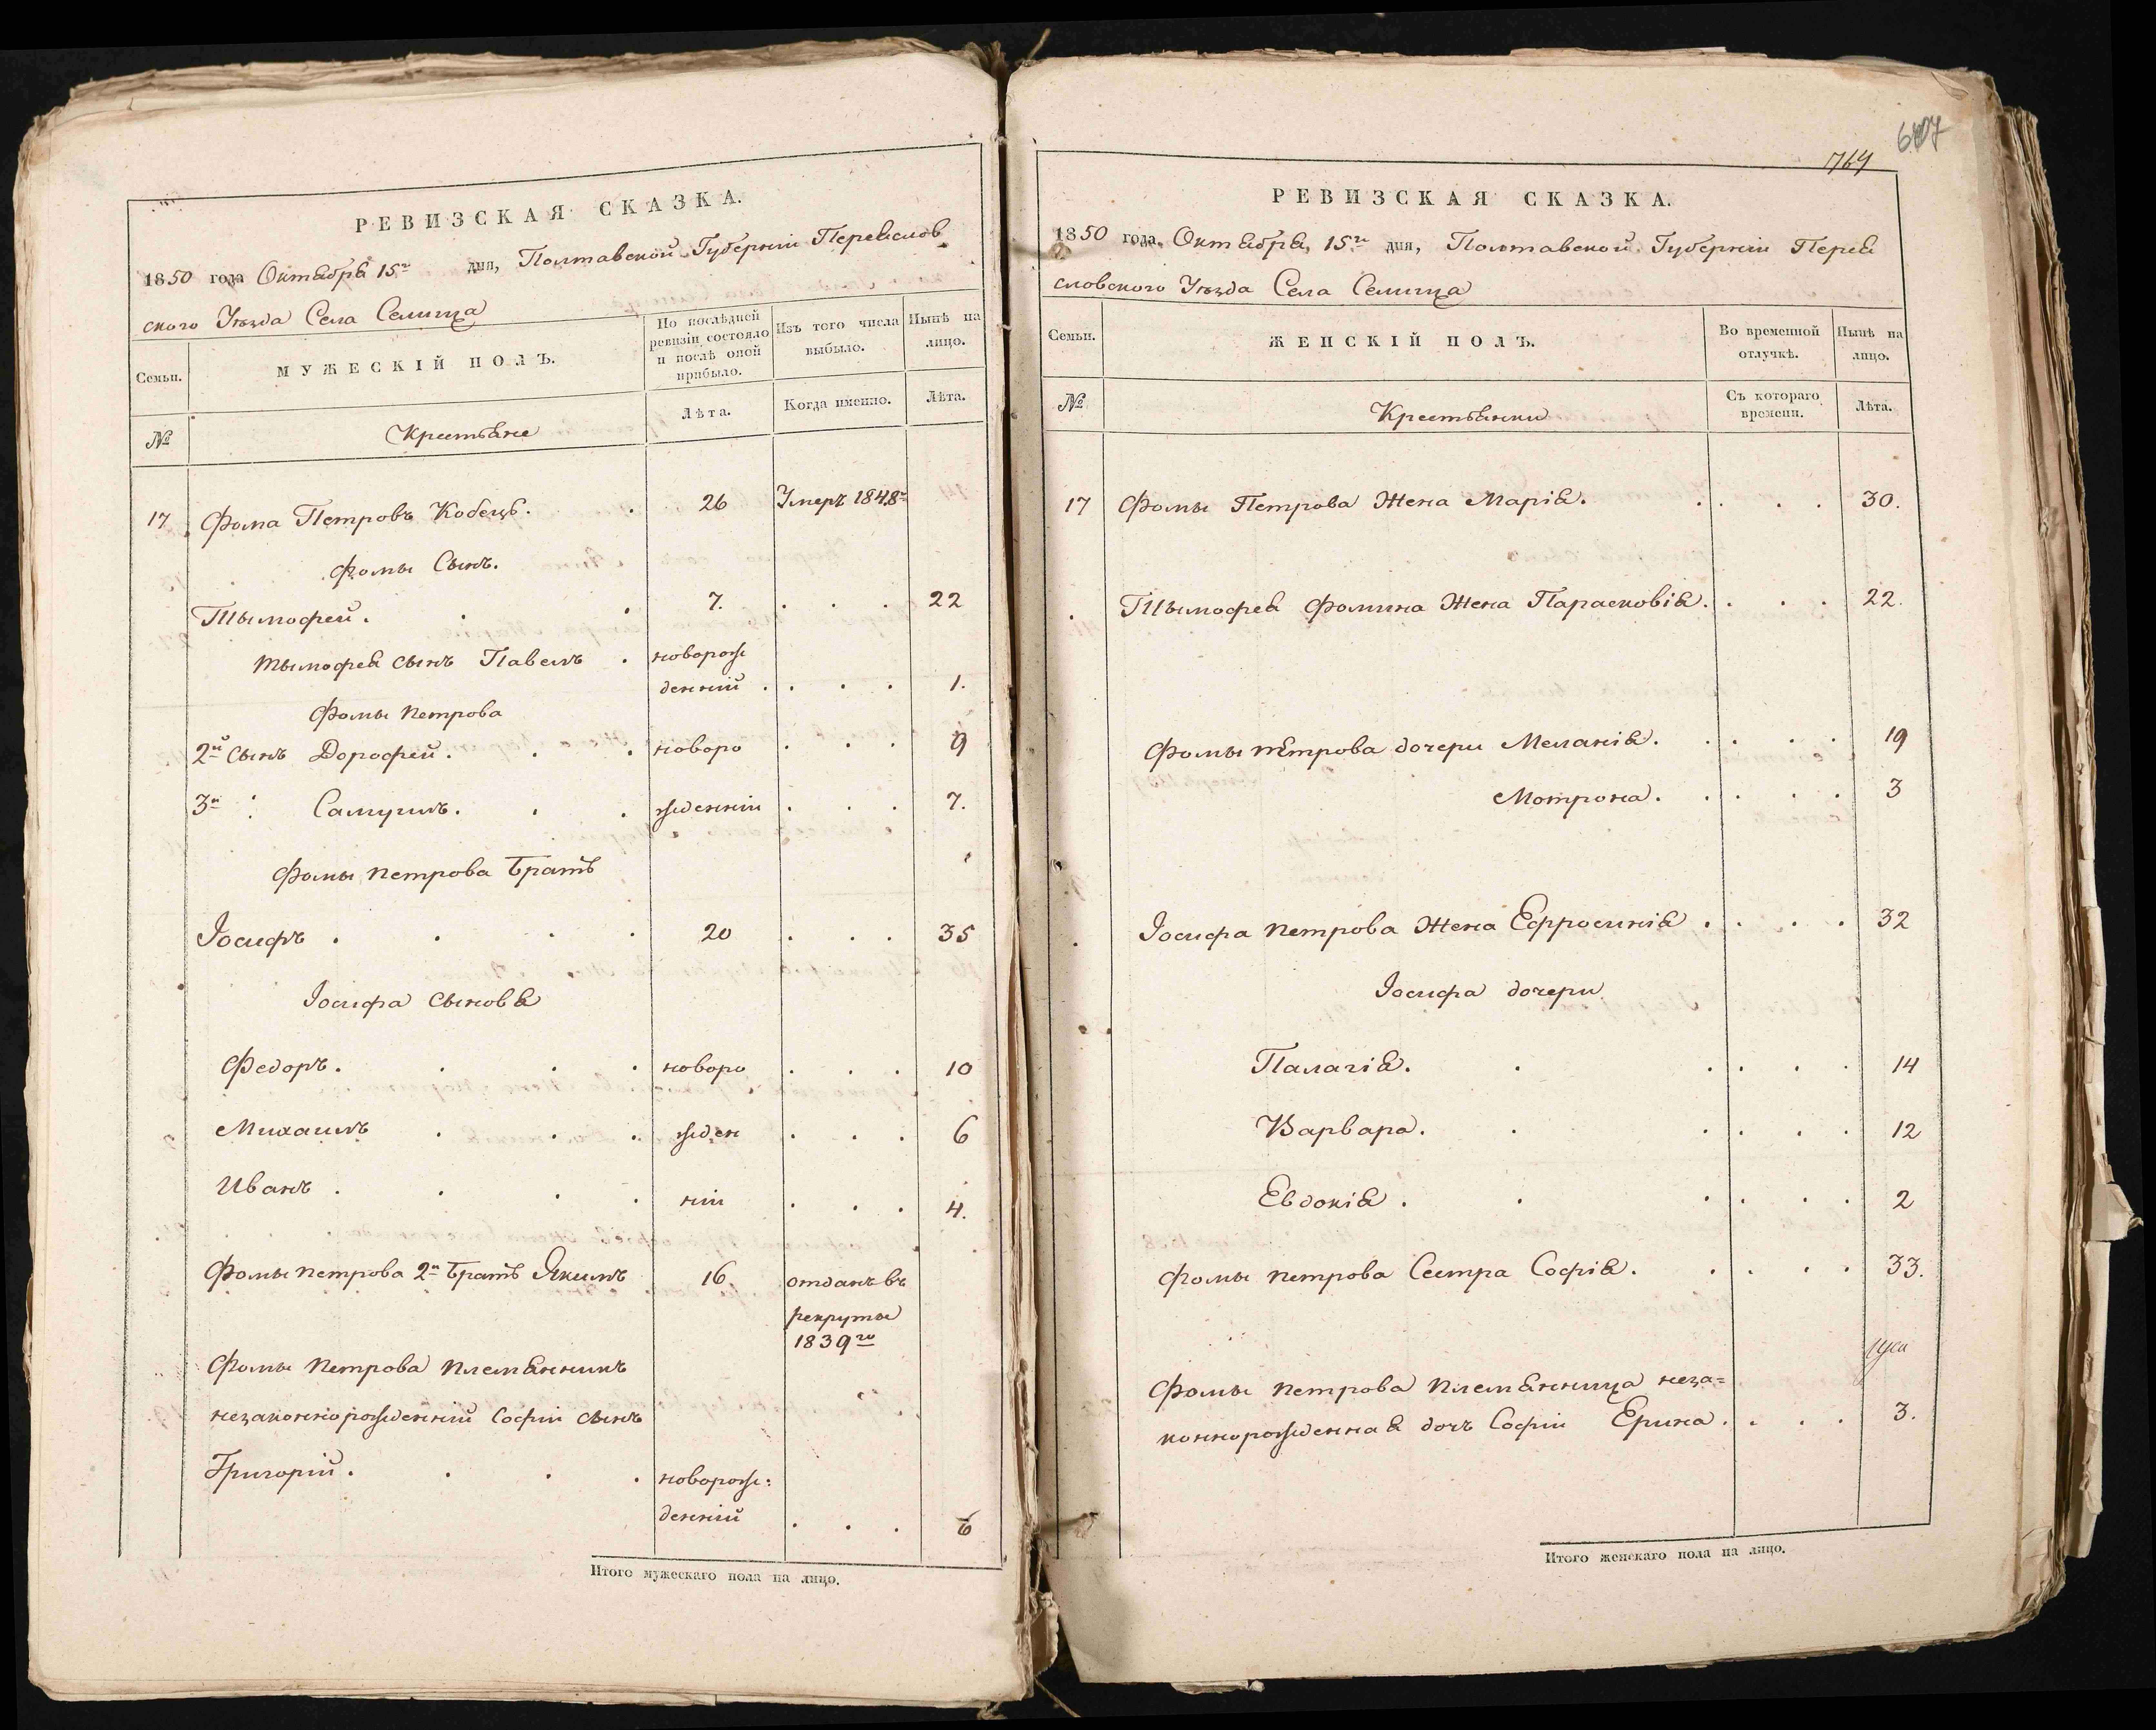 РЕВИЗСКАЯ СКАЗКА.
1850 года Октября 15го дня, Полтавской Губерніи Переяслов
ского Уезда Села Селища
Семьи.
МУЖЕСКІЙ ПОЛЪ.
По послѣдней ревизіи состояло и послѣ оной прибыло.
Изъ того числа выбыло.
Нынѣ на лицо.
№
Крестьяне
Лѣта.
Когда именно.
Лѣта.
17 Фома Петровъ Кобець. 26 Умеръ 1848го
Фомы Сынъ.
Тымофей. 7. 22
тымофея сынъ Павелъ новорож
денній 1.
Фомы петрова
2й сынъ Дорофей. новоро 9
3й Самуилъ. жденніи 7.
Фомы петрова Братъ
Іосифъ 20 35
Іосифа сыновя
Федоръ. новоро 10
Михаилъ жден 6
Иванъ ніи 4.
Фомы петрова 2й Братъ Якимъ 16 отданъ въ
рекруты
1839го
Фомы Петрова племянникъ
незаконнорожденній Софіи сынъ
Григорій. новорож:
денній 6
Итого мужескаго пола на лицо.
607
764
РЕВИЗСКАЯ СКАЗКА.
1850 года Октября 15го дня, Полтавской Губерніи Перея
словского Уезда Села Селища
Семьи.
ЖЕНСКІЙ ПОЛЪ.
Во временной отлучкѣ.
Нынѣ на лицо.
№
Крестьянки
Съ котораго времени.
Лѣта.
17 Фомы Петрова Жена Марія. 30.
Тымофея Фомина Жена Парасковія. 22.
Фомы петрова дочери Меланія. 19
Мотрона. 3
Іосифа петрова Жена Ефросинія 32
Іосифа дочери
Палагія. 14
Варвара. 12
Евдокія 2
Фомы петрова Сестра Софія. 33.
Фомы петрова племянница неза=
коннорожденная дочь Софіи Ерина. 3.
Итого женскаго пола на лицо.